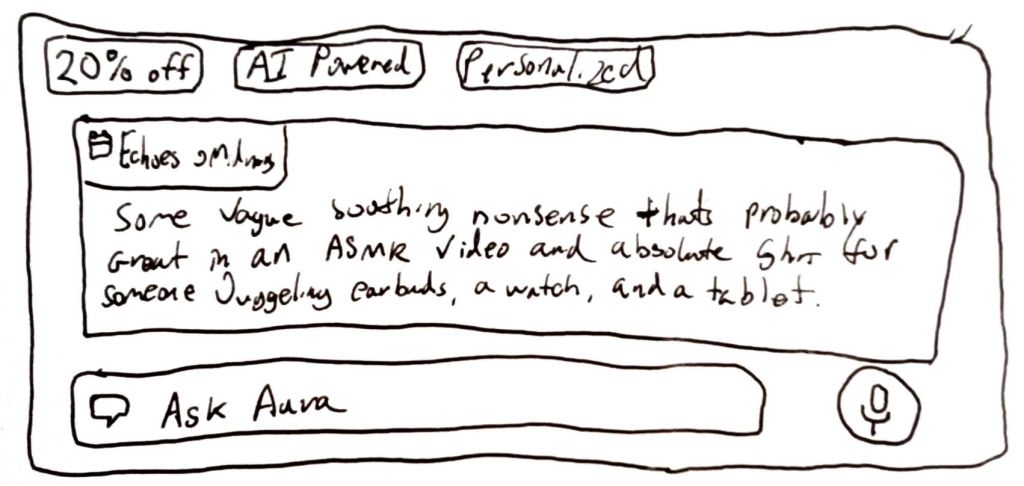 20% off
AI Powered
Personalized
Echoes
Some vague soothing nonsense thats probably
Great in an ASMR video and absolute Shit for
someone Juggeling earbuds, a watch, and a tablet.
Ask Aura